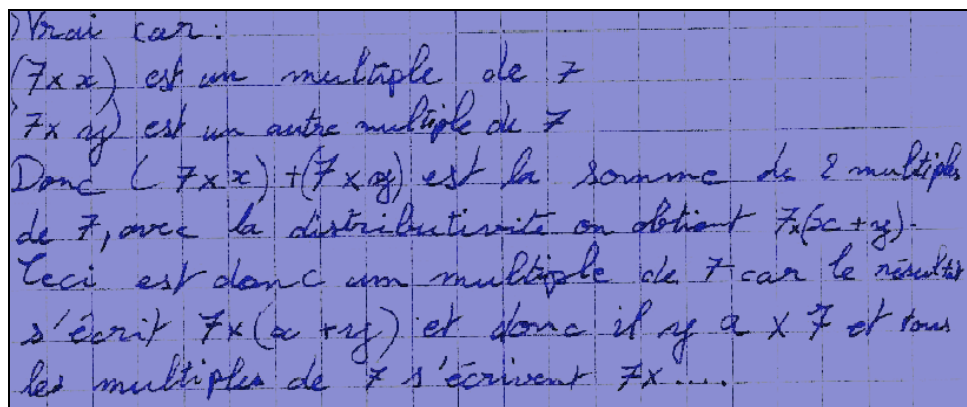 ) Vrai car :
(7 x x) est un multiple de 7
7 x y) est un autre multiple de 7
Donc ( 7 x x) + (7 x y) est la somme de 2 multiples
de 7, avec la distributivité on obtient 7x(x + y).
Ceci est donc um multiple de 7 car le résultat
s'écrit 7 x (x + y) et donc il y a x 7 et tous
les multiples de 7 s'écrivent 7x....